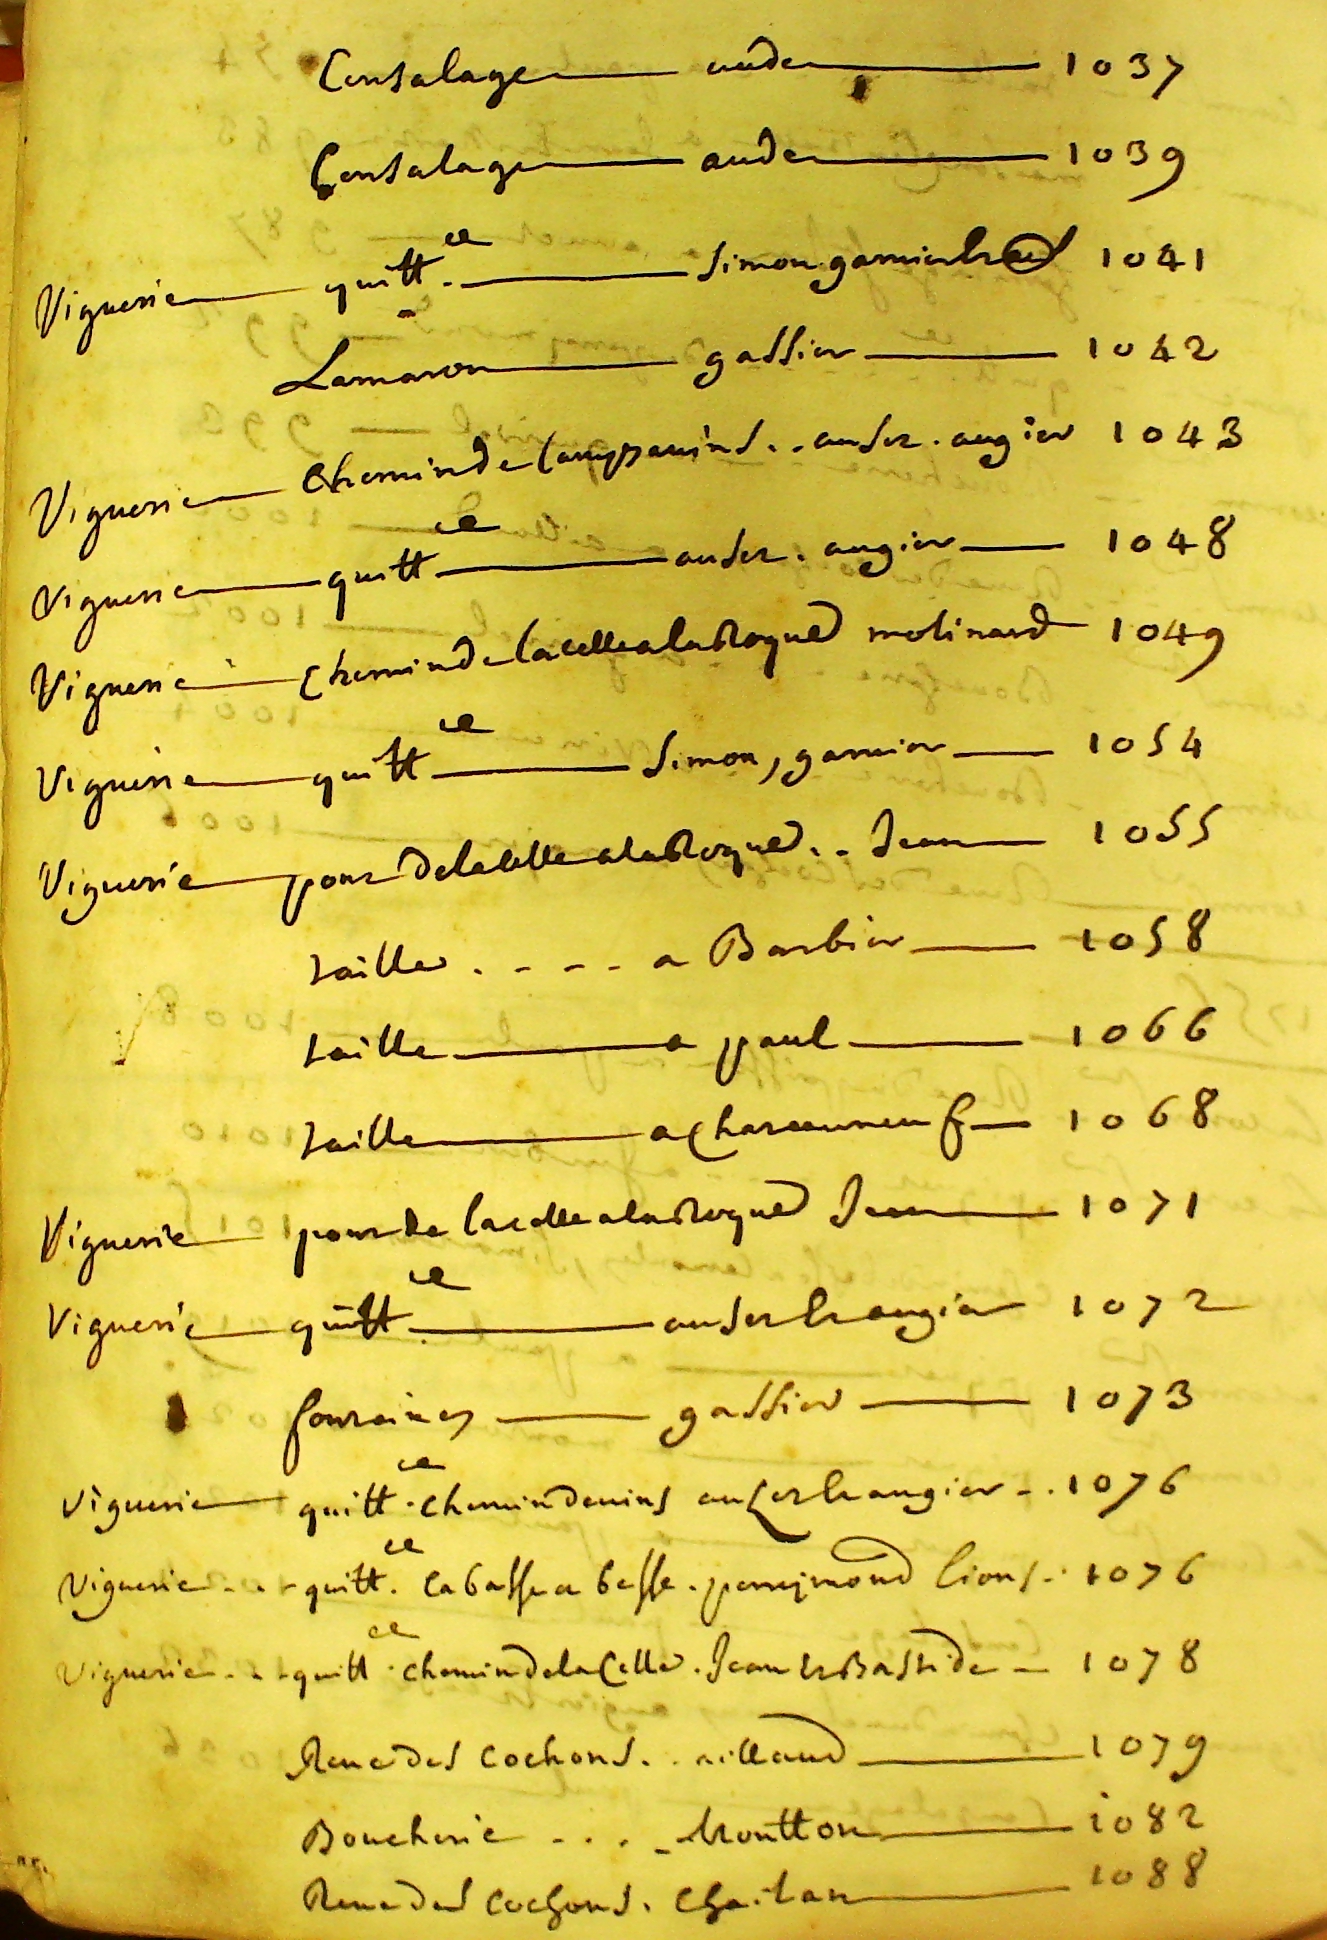 Censalage aude 1037
Censalage aude 1039
Viguerie quitt.ce Simon garnier 1041
Lamaron gassier 1042
Viguerie chemin de Camparins . . auser . augier 1043
Viguerie quittce auser . augier 1048
Viguerie chemin de lacelle alaRoque molinard 1049
Viguerie quittce Simon, garnier 1054
Viguerie pour delacelle alaRoque . . Jean 1055
taille . - - - a Barbier 1058
taille a paul 1066
taille a chateauneuf 1068
Viguerie pour de lacelle alaRoque Jean 1071
Viguerie quittce auser augier 1072
fontaines gassier 1073
Viguerie quitt.ce chemin devins auser augier - . 1076
Viguerie . . - quitt.ce Cabasse a besse . pereymond lions - . 1076
Viguerie . . - quitt.ce chemin delaCelle . Jean Bastide - 1078
Reve des cochons . . aillaud 1079
Boucherie - . . - moutton 1082
Reve des cochons . chailan 1088